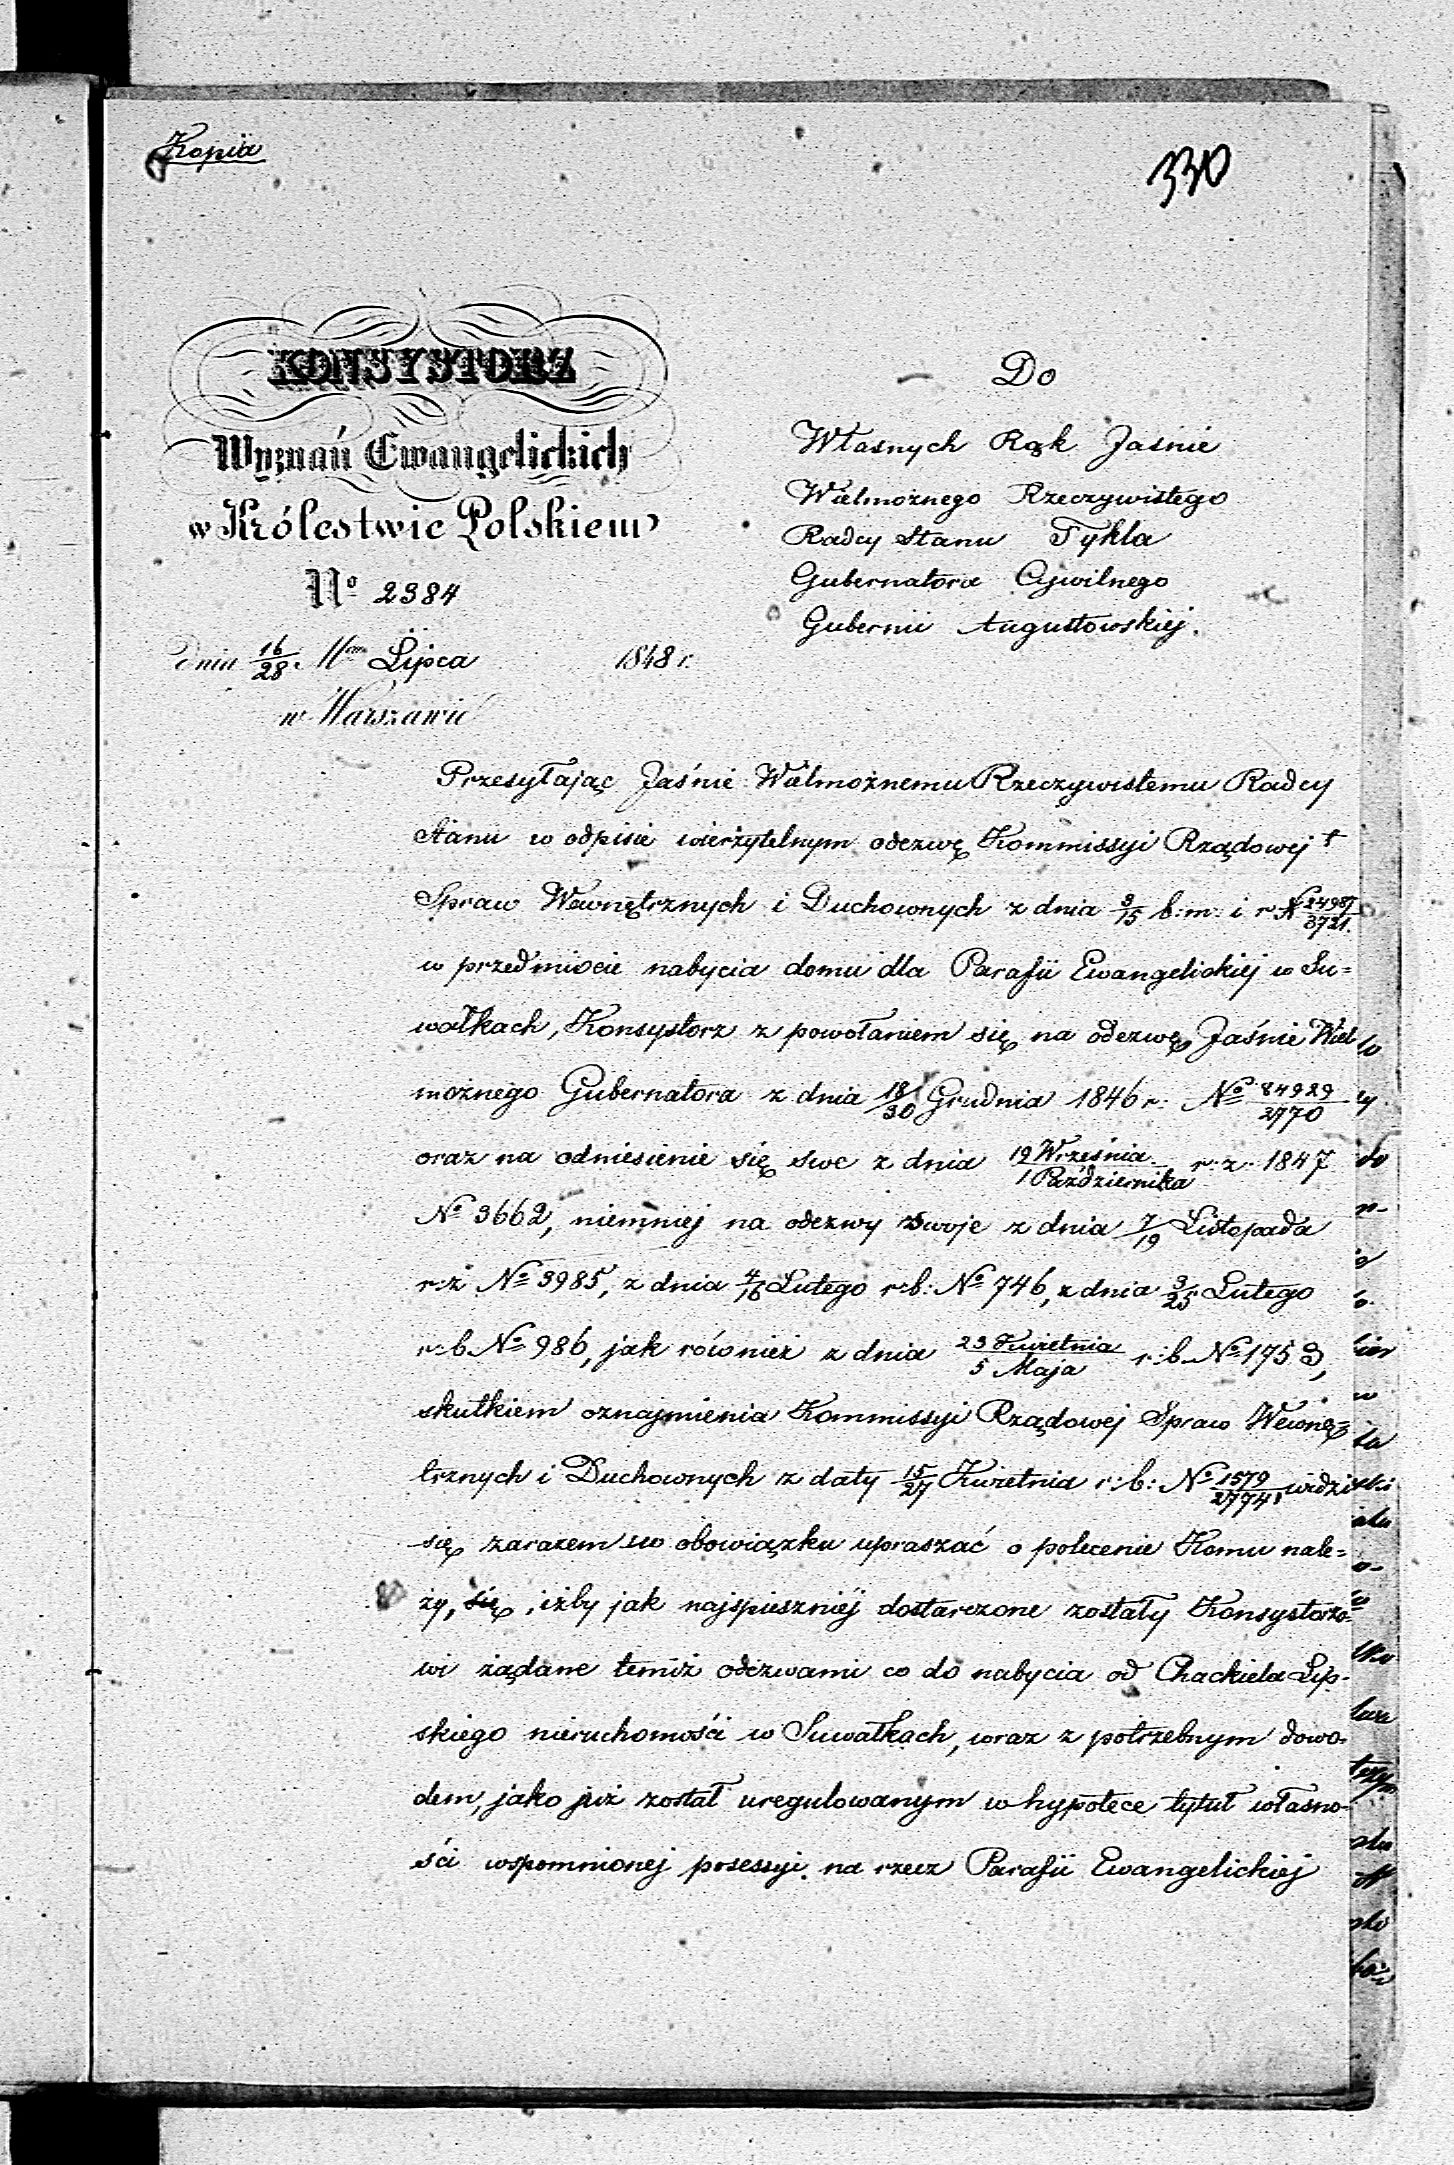 Kopia
330
KONSYSTORZ
Wyznań Ewangelickich
w Królestwie Polskiem
No 2384
Dnia 16/28 Mca Lipca 1848 r.
w Warszawie
Do
Własnych Rąk Jaśnie
Wielmożnego Rzeczywistego
Radcy Stanu Tykla
Gubernatora Cywilnego
Gubernii Augustowskiej.
Przesyłając Jaśnie Wielmożnemu Rzeczywistemu Radcy
Stanu w odpisie wierzytelnym odezwę Kommissyi Rządowej
Spraw Wewnętrznych i Duchownych z dnia 3/15 b: m: i r. N 24987/3721.
w przedmiocie nabycia domu dla Parafii Ewangelickiej w Su=
wałkach, Konsystorz z powołaniem się na odezwę Jaśnie Wiel
możnego Gubernatora z dnia 18/30 Grudnia 1846 r: No 84929/2770
oraz na odniesienie się swe z dnia 19 Września/1 Października r: z: 1847
No 3662, niemniej na odezwy swoje z dnia 7/19 Listopada
r: z No 3985, z dnia 4/16 Lutego r: b: No 746, z dnia 3/25 Lutego
r: b No 986, jak również z dnia 23 Kwietnia/5 Maja r: b No 1753,
skutkiem oznajmienia Kommissyi Rządowej Spraw Wewnę=
trznych i Duchownych z daty 15/27 Kwietnia r: b: No 1579/27741 widzi
się zarazem w obowiązku upraszać o polecenie Komu nale=
ży, się, iżby jak najspieszniej dostarczone zostały Konsystorzo=
wi żądane temiż odezwami co do nabycia od Chackiela Lip-
skiego nieruchomości w Suwałkach, wraz z potrzebnym dowo-
dem, jako już został uregulowanym w hypotece tytuł własno-
ści wspomnionej posessyi na rzecz Parafii Ewangelickiej